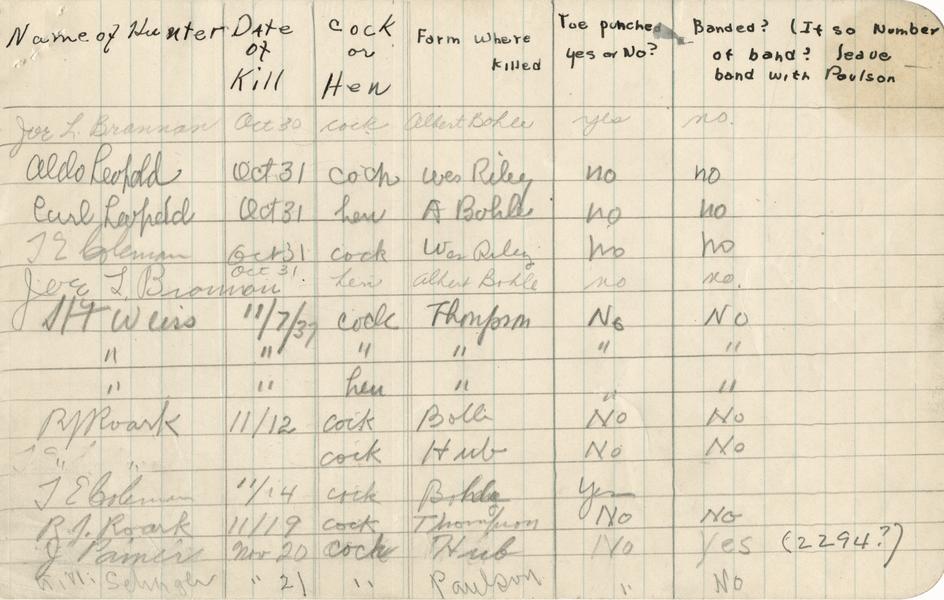 Name of Hunter Date of Kill Cock or Hen Farm where killed Toe punched yes or No? Banded? (If so Number of band? leave band with Paulson
Joe L. Brannan Oct 30 cock Albert Bohle yes no.
Aldo Leopold Oct 31 cock Wes Riley no no
Carl Leopold Oct 31 hen A Bohle no no
T E Coleman Oct 31 cock Wes Riley no no
Joe L. Brannan Oct 31. hen Albert Bohle no no.
Weiss 11/7/37 cock Thompson No No
" " " " " "
" " hen " " "
RJ Roark 11/12 cock No No
" " cock Hub No No
T E Coleman 11/14 cock Yes
R.J. Roark 11/19 cock Thompson No No
J. Nov 20 cock Hub No Yes (2294?)
" 21 " Paulson " No